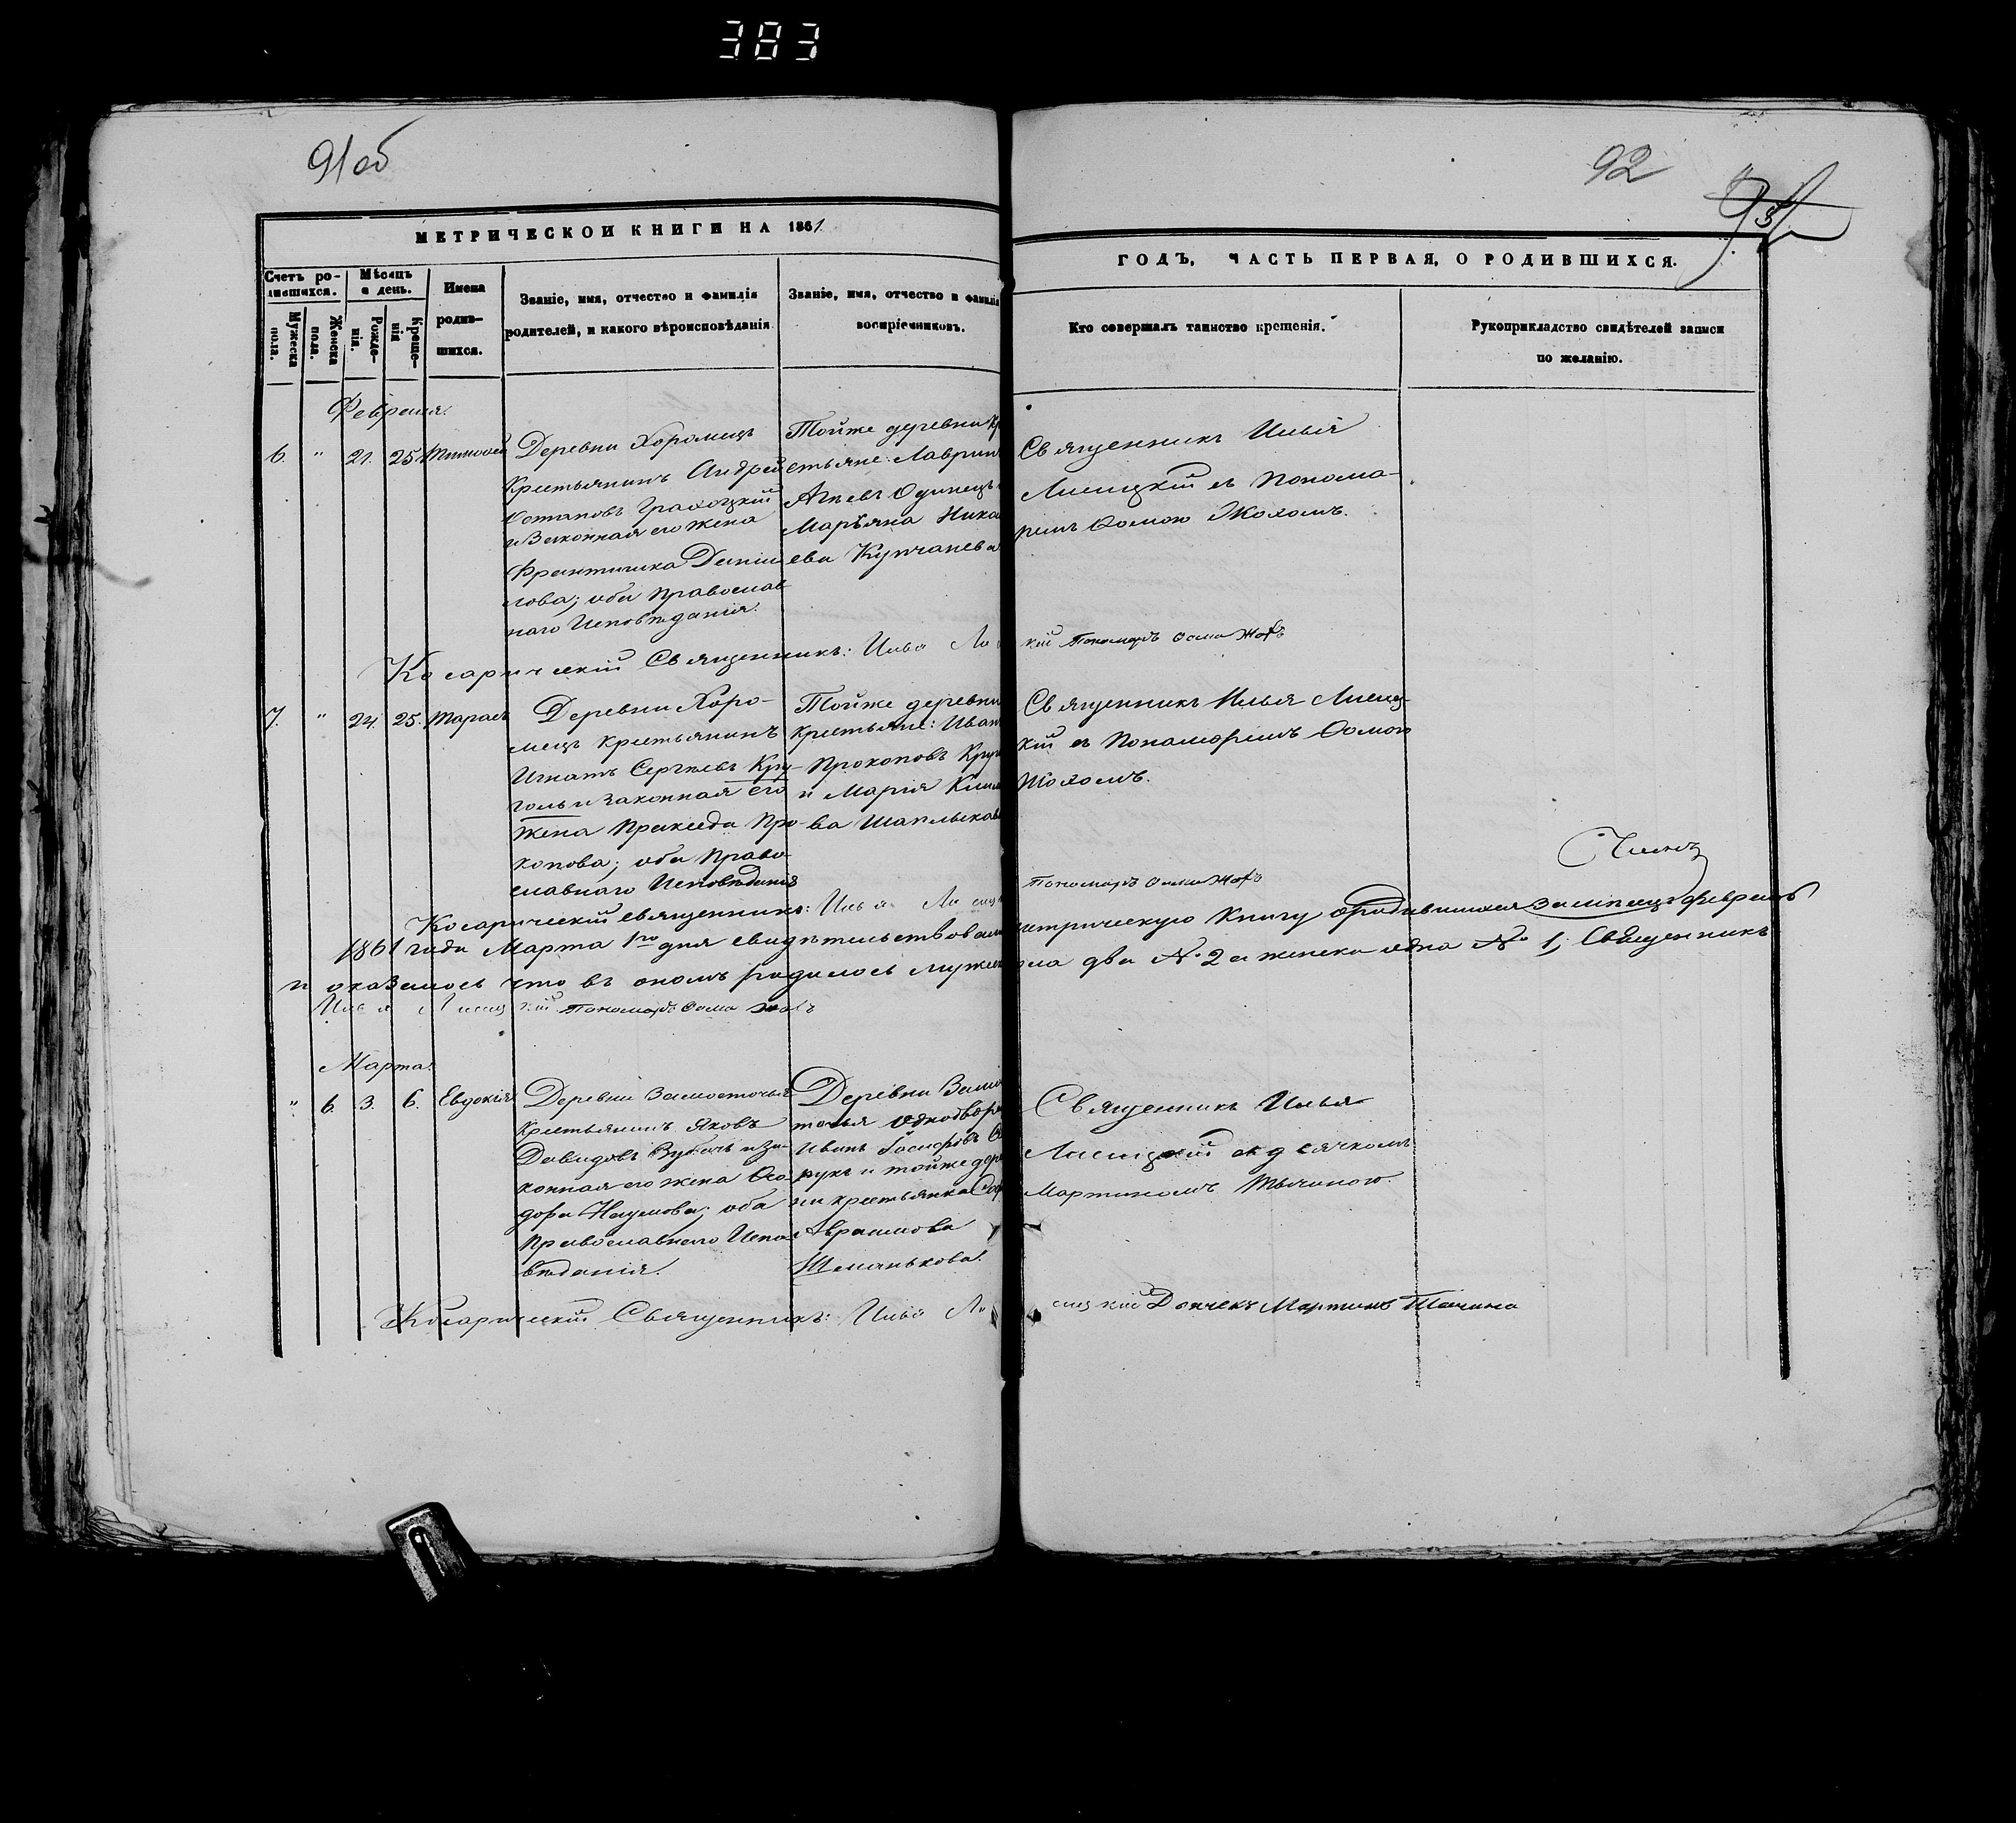 383
91об
92
МЕТРИЧЕСКОЙ КНИГИ НА 1861
ГОДЪ, ЧАСТЬ ПЕРВАЯ, О РОДИВШИХСЯ.
Счетъ ро-
дившихся.
Мужеска
пола.
Женска
пола.
Мѣсяцъ
и день.
Рожде-
нія.
Креще-
нія
Имена
родив-
шихся.
Званіе, имя, отчество и фамилія
родителей, и какого вѣроисповѣданія
Званіе, имя, отчество и фамилія
воспріемниковъ.
Кто совершалъ таинство крещенія.
Рукоприкладство свидѣтелей записи
по желанію.
Февраля.
6. " 21. 25. Тимоѳей
Деревни Хоромецъ
крестьянинъ Андрей
и законная его жена
Францишка Дани-
лова; оба православ
наго Исповѣданія.
Тойже деревни кр
естьяне: Лаврин
Агѣевъ Одинецъ
Марьяна Ника
ева Купчанева
Священникъ Илія
Лисицкій съ понома-
ремъ Ѳомою Жохомъ.
Косаричскій Священникъ: Илья Ли
кій Пономарь Ѳома Жохъ
7. " 24. 25. Тарасъ
Деревни Хоро-
мецъ крестьянинъ
Игнатъ Сергѣевъ Кру-
голь и законная его
жена Пракседа Про-
копова; оба Право-
славнаго Исповѣданія
Тойже деревни
крестьяне: Иван
Прокоповъ Круг
и Марія Клим
ва Шаплыкова
Священникъ Илья Лисиц-
кій съ Пономаремъ Ѳомою
Жохомъ.
Косаричскій священникъ: Илья Лисиц
Пономарь Ѳома Жохъ
1861 года Марта 1го дня свидѣтельствовали
метрическую Книгу о родившихся за мѣсяцъ февраль
Число
и оказалось что въ ономъ родилось мужеск
пола два № 2 а женска одна № 1; Священникъ
Илья Лисицкій Пономарь Ѳома Жохъ
Марта.
" 6. 3. 6. Евдокія
Деревни Замосточья
крестьянинъ Яковъ
Давидовъ Зубачъ и за-
конная его жена Ѳео-
дора Наумова; оба
Православнаго Испо-
вѣданія.
Деревни Замос
точья однодворе
Иванъ
рукъ и тойже дерев
ни крестьянка Соф
Авраамова
Шеманькова.
Священникъ Илья
Лисицкій съ дьячкомъ
Мартиномъ Тычиною.
Косаричскій Священникъ: Илья Ли
сицкій Дьячекъ Мартинъ Тычина